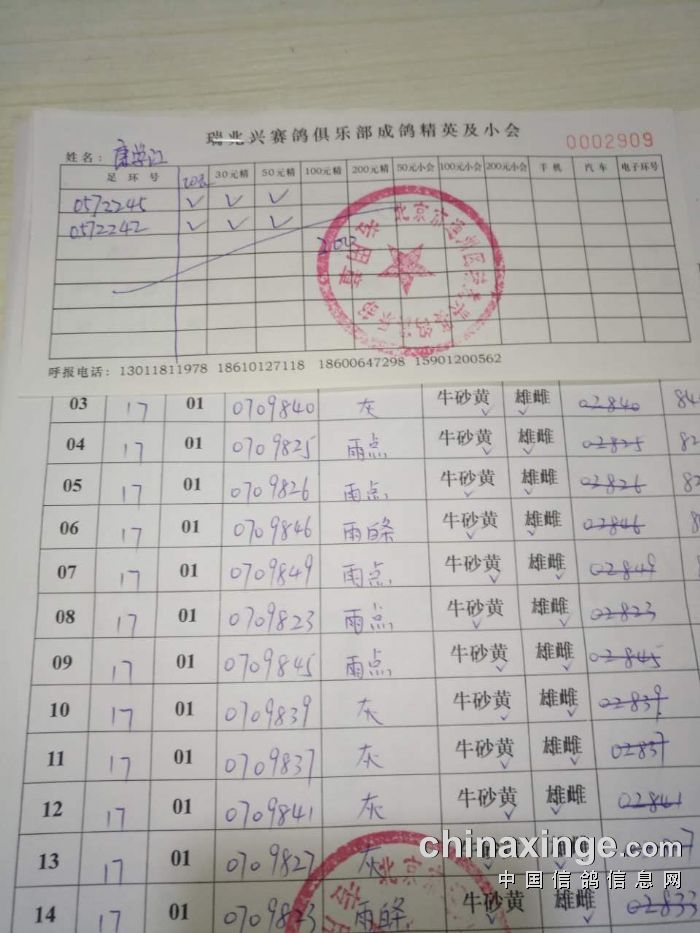 瑞兆兴赛鸽俱乐部成鸽精英及小会
姓名: 0002909
足环号 30元精 50元精 100元精 200元精 50元小会 100元小会 200元小会 手机 汽车 电子环号
0572245 ✓ ✓ ✓
0572242 ✓ ✓ ✓
呼报电话: 13011811978 18610127118 18600647298 15901200562
03 17 01 0709840 灰 牛砂黄 雄雌 02840
04 17 01 0709825 雨点 牛砂黄 雄雌 02825 82
05 17 01 0709826 雨点 牛砂黄 雄雌 02826 82
06 17 01 0709846 雨白条 牛砂黄 雄雌 02846
07 17 01 0709849 雨点 牛砂黄 雄雌 02849
08 17 01 0709823 雨点 牛砂黄 雄雌 02823
09 17 01 0709845 雨点 牛砂黄 雄雌 02845
10 17 01 0709839 灰 牛砂黄 雄雌 02839
11 17 01 0709837 灰 牛砂黄 雄雌 02837
12 17 01 0709841 灰 牛砂黄 雄雌 02841
13 17 01 0709827 灰
chinaxinge.com
中国信鸽信息网
14 17 01 0709823 雨白条 牛砂黄 雄雌 02833